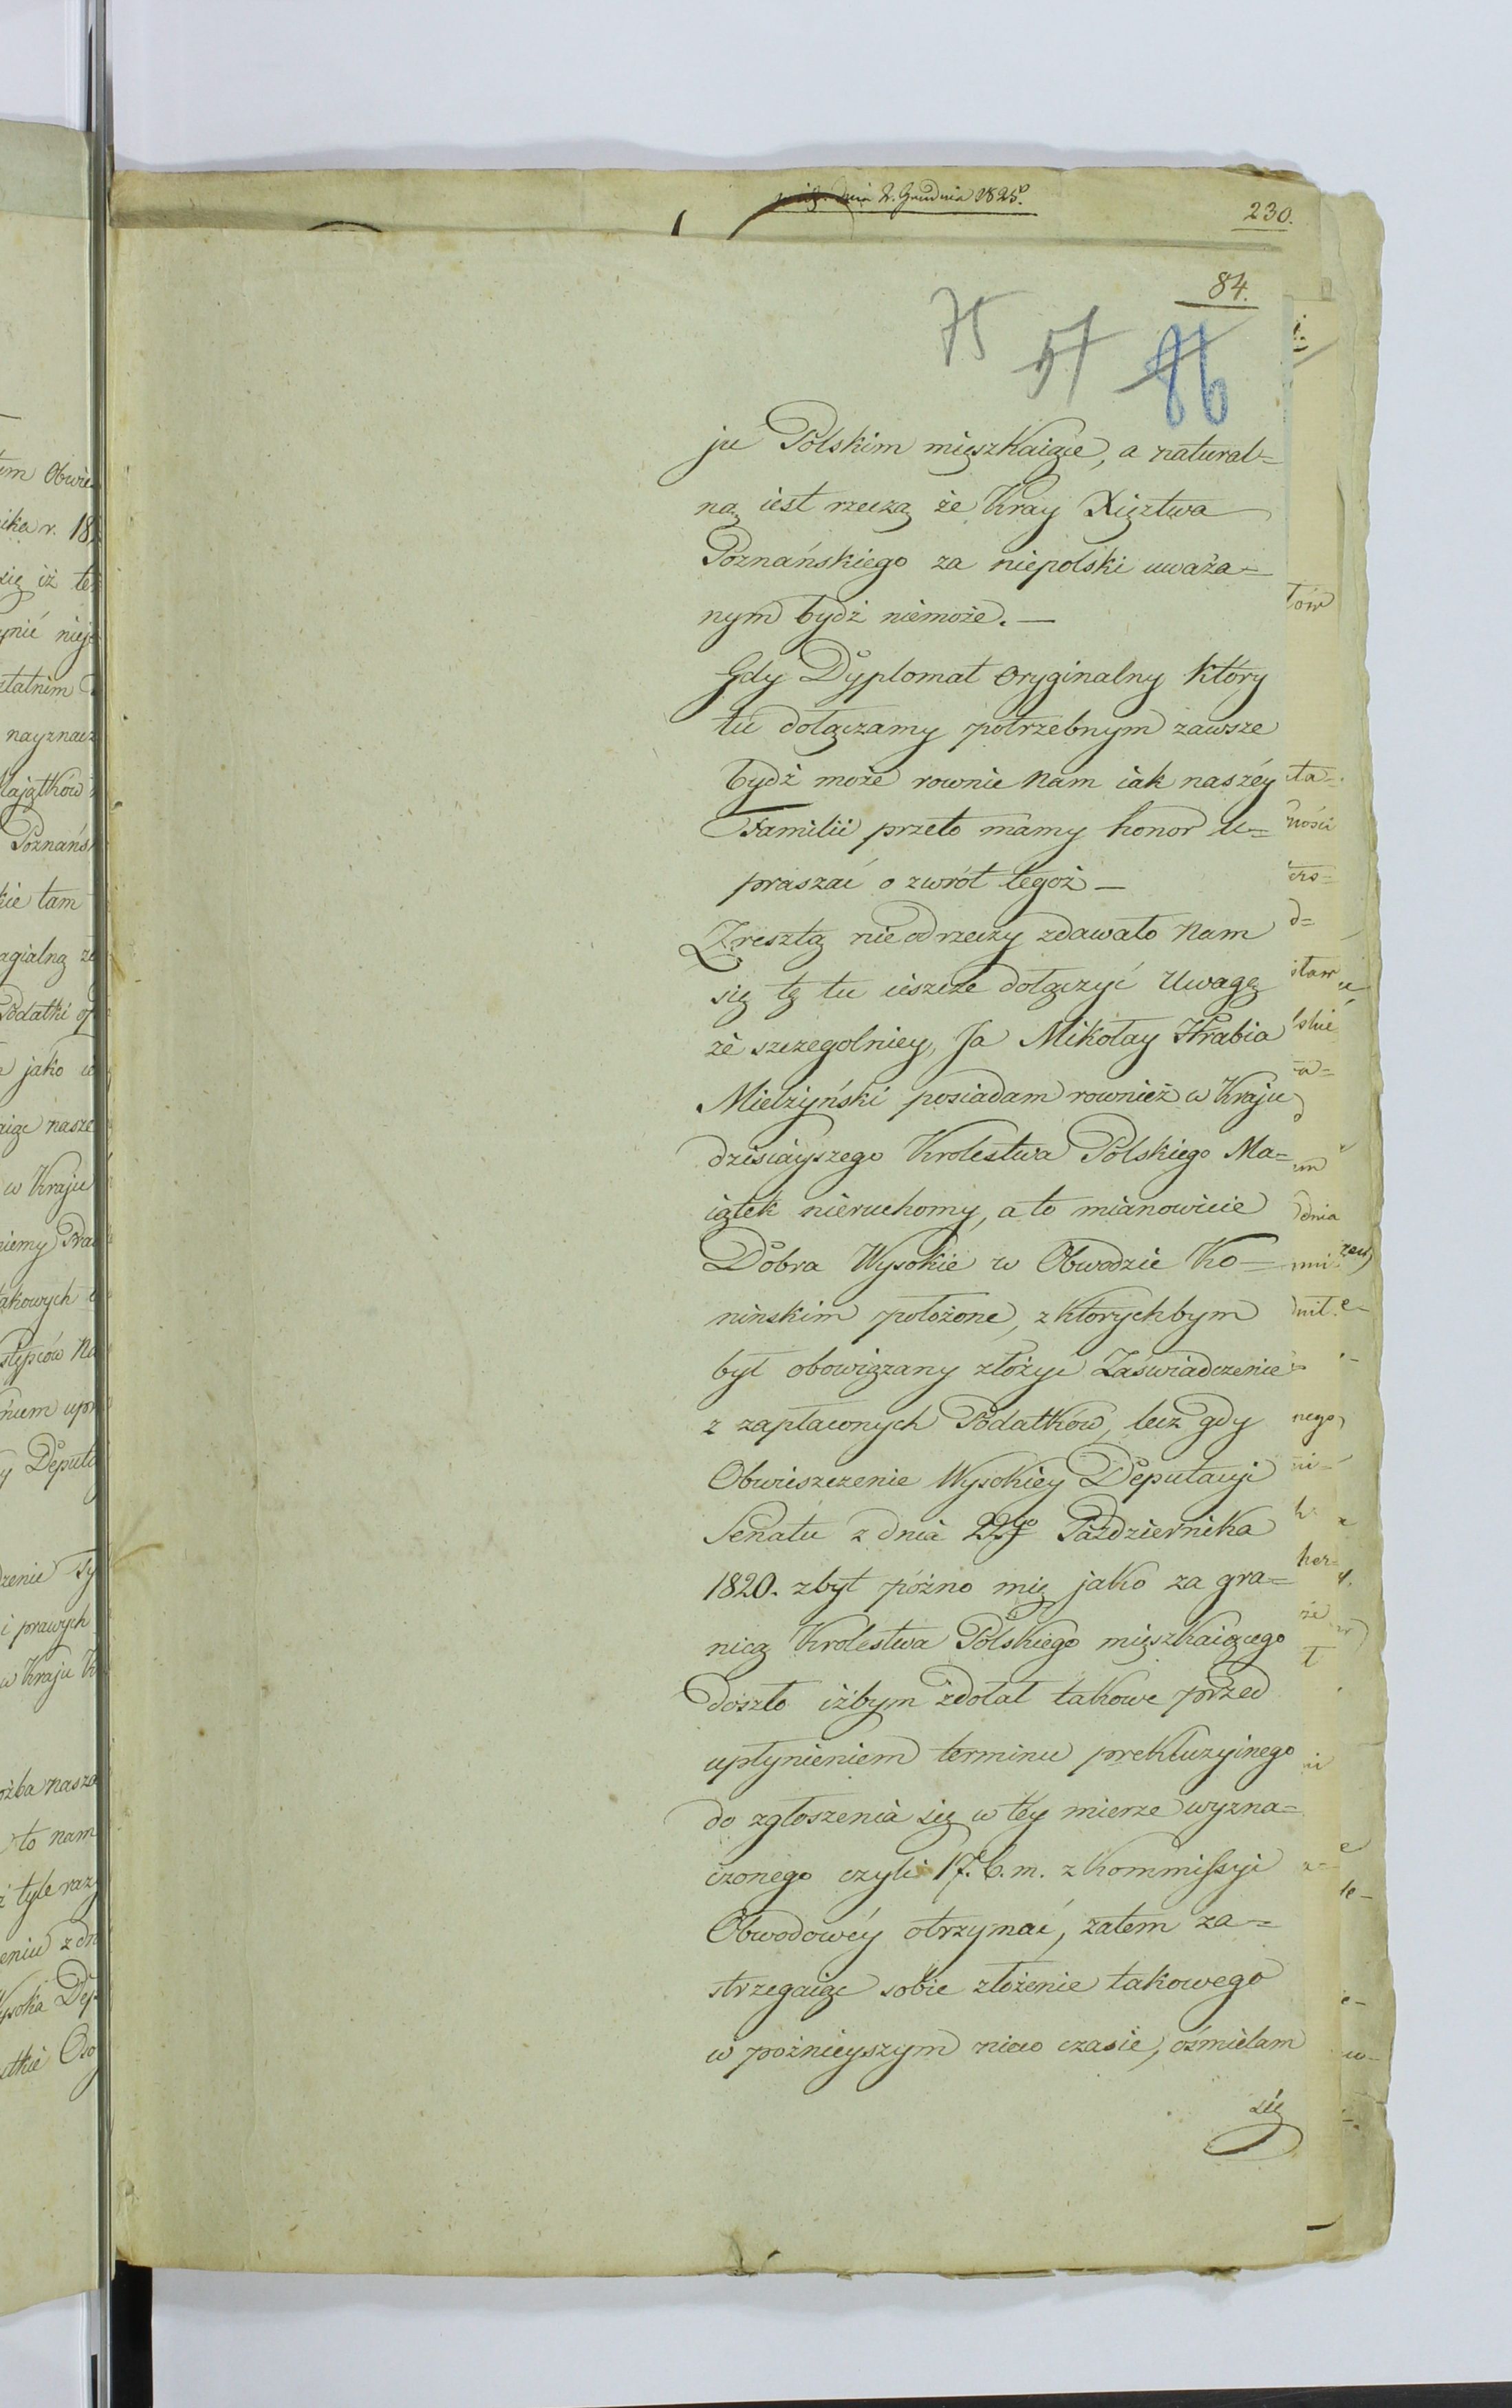 dnia 2. Grudnia 1825.
230.
84.
75 57 86
ju Polskim mięszkaiące, a natural=
ną iest rzeczą że Kray Xięztwa
Poznańskiego za niepolski uważa=
nym bydź niemoże. —
Gdy Dyplomat oryginalny który
tu dołączamy potrzebnym zawsze
bydź może rownie nam iak naszéy
Familii przeto mamy honor u=
praszać o zwrót tegoż —
Zresztą nie odrzeczy zdawało nam
się tę tu ieszcze dołączyć Uwagę
że szczegolniey, Ja Mikołay Hrabia
Mielzyński posiadam rownież w Kraju
dzisiayszego Krolestwa Polskiego Ma=
iątek nieruchomy, a to mianowicie
Dobra Wysokie w Obwodzie Ko=
ninskim położone, z ktorychbym
był obowiązany złożyć Zaświadczenie
z zapłaconych Podatków, lecz gdy
Obwieszczenie Wysokiey Deputacyi
Senatu z dnia 22go Pazdziernika
1820. zbyt późno mię jako za gra=
nicą Krolestwa Polskiego mięszkaiącego
doszło iżbym zdołał takowe przed
upłynieniem terminu prekluzyinego
do zgłoszenia się w tey mierze wyzna=
czonego czyli 17. b. m. z Kommissyi
Obwodowéy otrzymać, zatem za=
strzegaiąc sobie złożenie takowego
w poźnieyszym nieco czasie, ośmielam
się